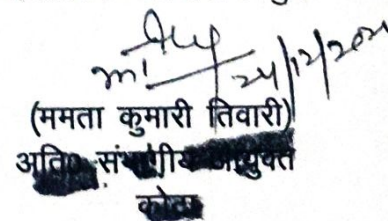 24/12/202
(ममता कुमारी तिवारी)
अति० संभागीय आयुक्त
कोटा